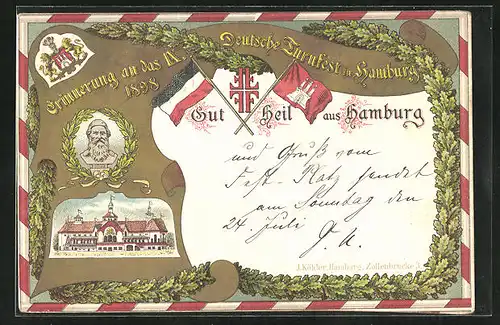 Erinnerung an das IX. Deutsche Turnfest in Hamburg
1898
Gut Heil aus Hamburg
und Gruß vom
Fest-Platz sendet
am Sonntag den
24 Juli
J. Köhler, Hamburg,